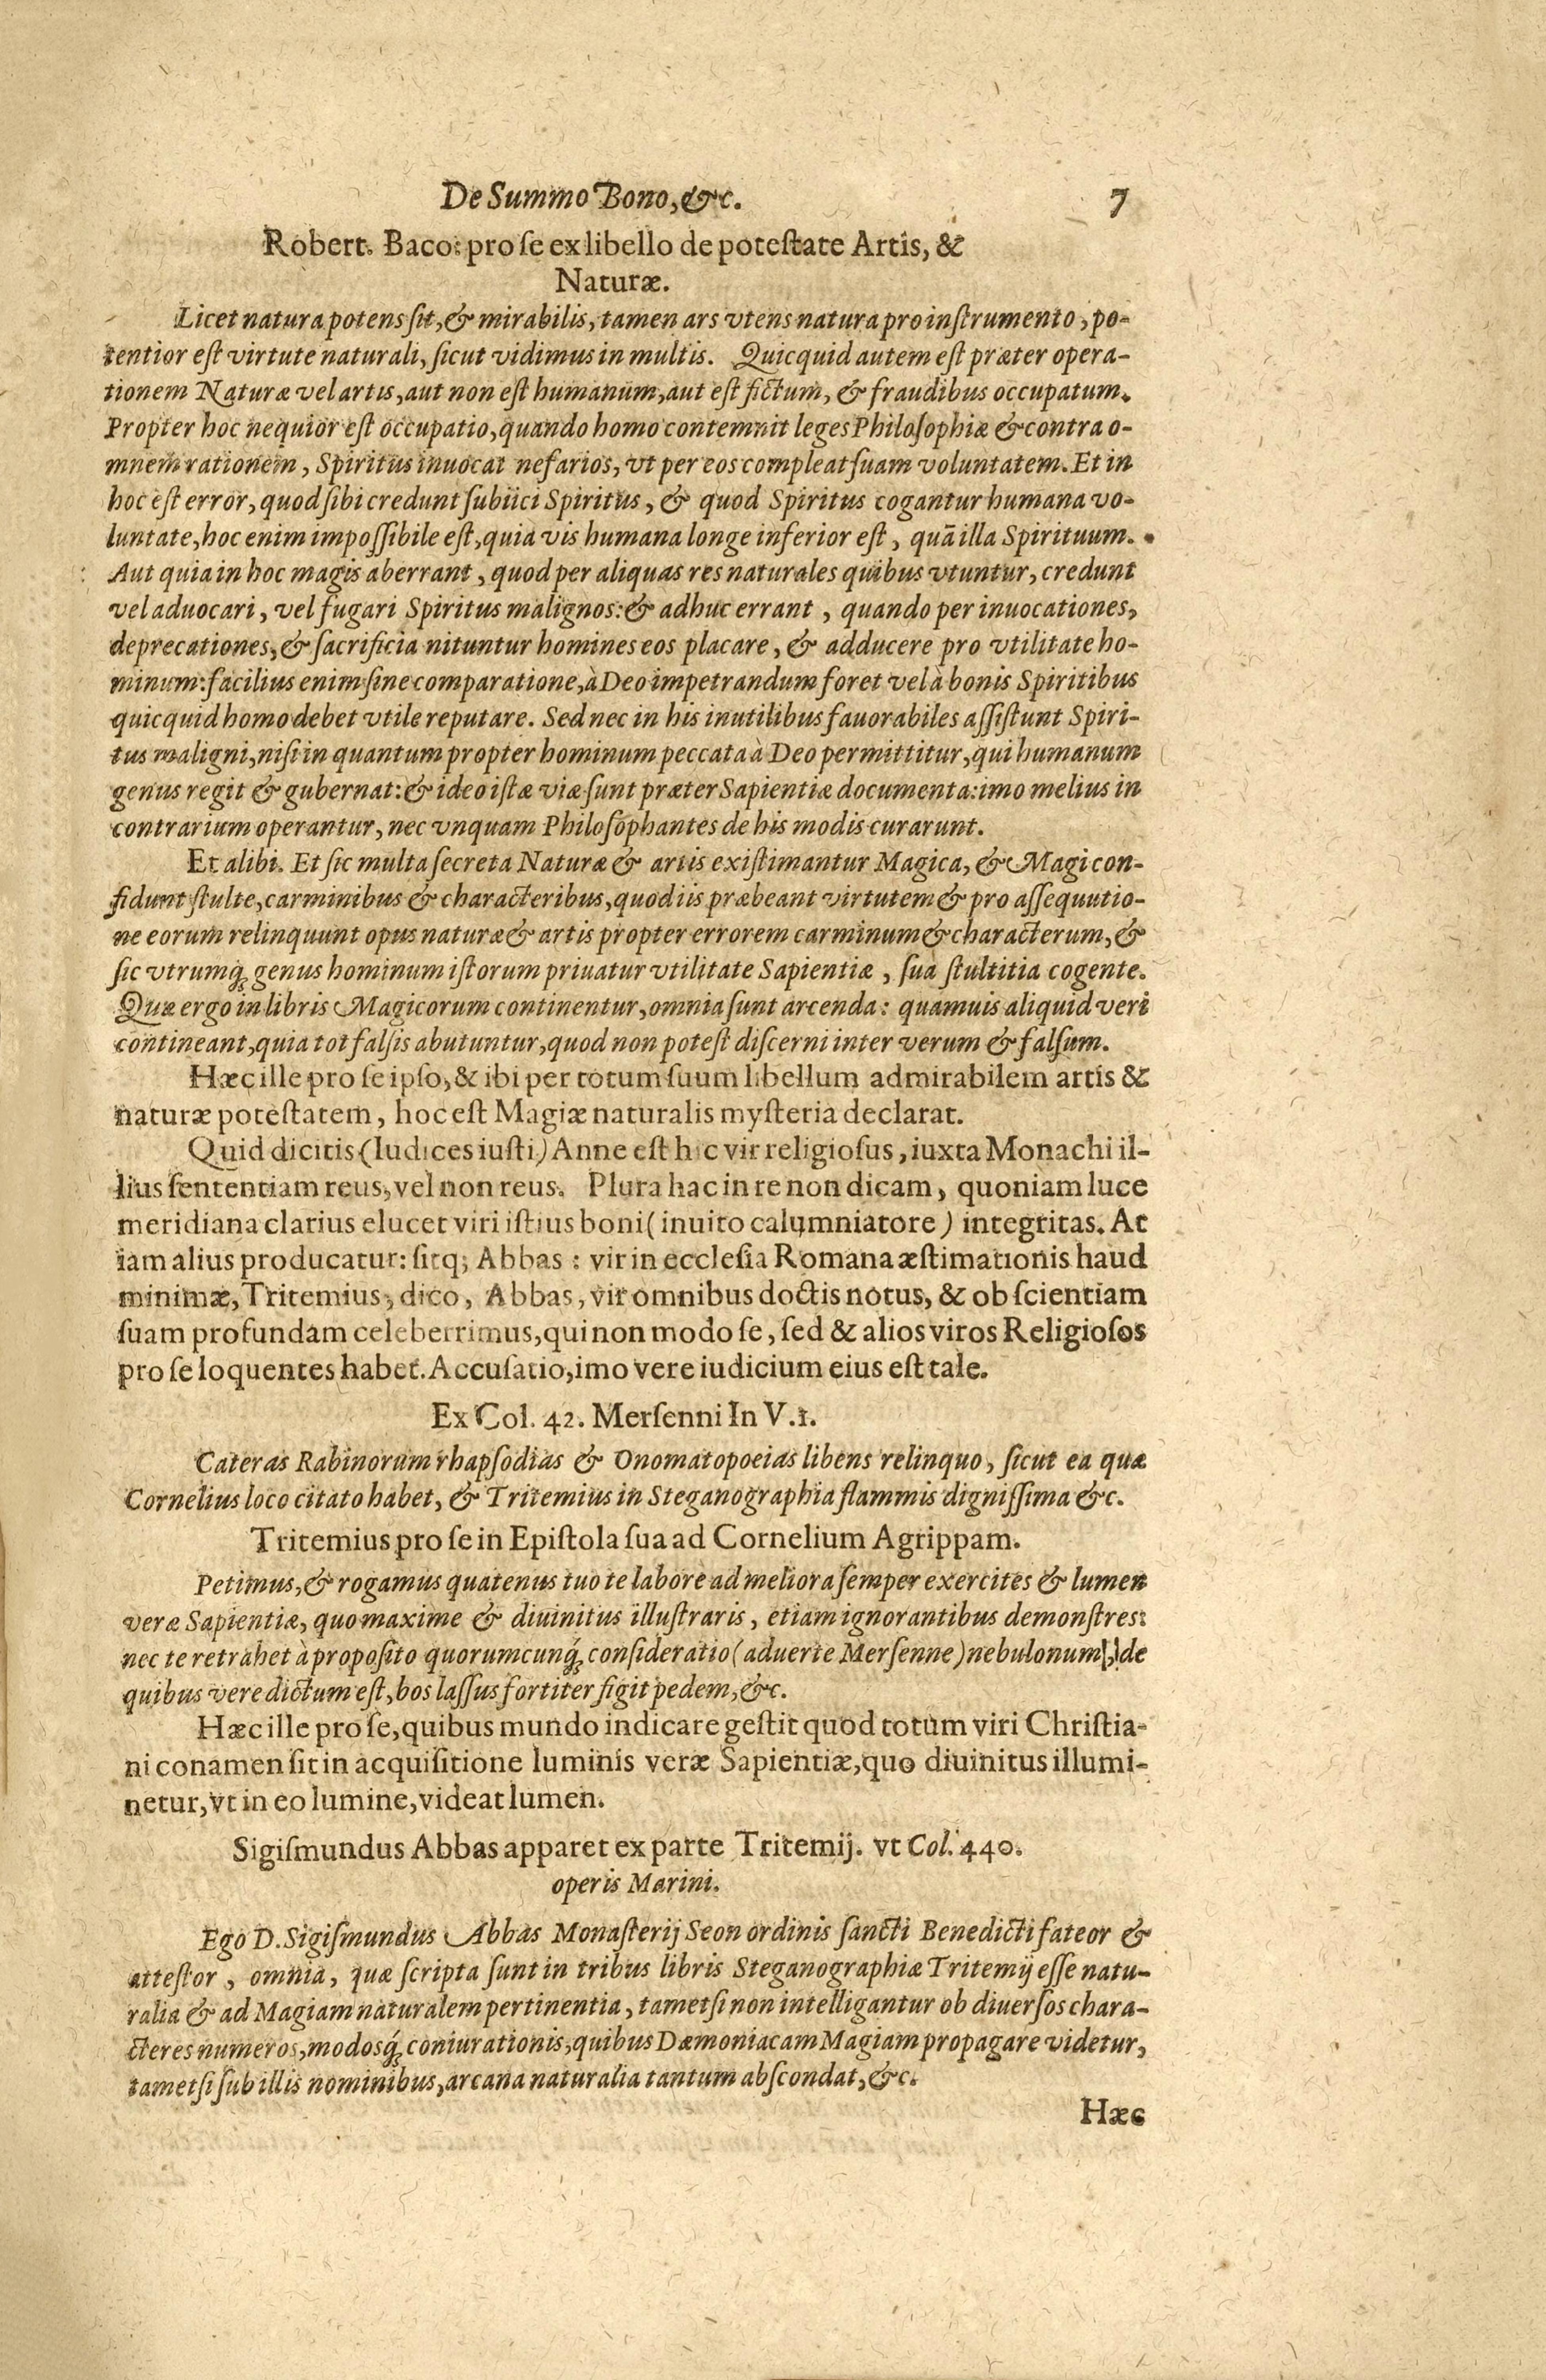 De Summo Bono, &c. 7
Robert. Baco: pro se ex libello de poteſtate Artis, &
Naturæ.
Licet natura potens ſit, & mirabilis, tamen ars vtens natura pro inſtrumento, po-
tentior eſt virtute naturali, ſicut vidimus in multis. Quicquid autem eſt præter opera-
tionem Naturæ vel artis, aut non eſt humanum, aut eſt fictum, & fraudibus occupatum.
Propter hoc nequior eſt occupatio, quando homo contemnit leges Philoſophiæ & contra o-
mnem rationem, Spiritus inuocat nefarios, vt per eos compleat ſuam voluntatem. Et in
hoc eſt error, quod ſibi credunt ſubiici Spiritus, & quod Spiritus cogantur humana vo-
luntate, hoc enim impoſſibile eſt, quia vis humana longe inferior eſt, quā illa Spirituum.
Aut quia in hoc magis aberrant, quod per aliquas res naturales quibus vtuntur, credunt
vel aduocari, vel fugari Spiritus malignos: & adhuc errant, quando per inuocationes,
deprecationes, & ſacrificia nituntur homines eos placare, & adducere pro vtilitate ho-
minum: facilius enim ſine comparatione, à Deo impetrandum foret vel à bonis Spiritibus
quicquid homo debet vtile reputare. Sed nec in his inutilibus fauorabiles aſſiſtunt Spiri-
tus maligni, niſi in quantum propter hominum peccata à Deo permittitur, qui humanum
genus regit & gubernat: & ideo iſtæ viæ ſunt præter Sapientiæ documenta: imo melius in
contrarium operantur, nec vnquam Philoſophantes de his modis curarunt.
Et alibi. Et ſic multa ſecreta Naturæ & artis exiſtimantur Magica, & Magi con-
fidunt ſtulte, carminibus & characteribus, quod iis præbeant virtutem & pro aſſequutio-
ne eorum relinquunt opus naturæ & artis propter errorem carminum & characterum, &
ſic vtrumq́; genus hominum iſtorum priuatur vtilitate Sapientiæ, ſua ſtultitia cogente.
Quæ ergo in libris Magicorum continentur, omnia ſunt arcenda: quamuis aliquid veri
contineant, quia tot falſis abutuntur, quod non poteſt diſcerni inter verum & falſum.
Hæc ille pro ſe ipſo, & ibi per totum ſuum libellum admirabilem artis &
naturæ poteſtatem, hoc eſt Magiæ naturalis myſteria declarat.
Quid dicitis (Iudices iuſti) Anne eſt hic vir religioſus, iuxta Monachi il-
lius ſententiam reus, vel non reus. Plura hac in re non dicam, quoniam luce
meridiana clarius elucet viri iſtius boni (inuito calumniatore) integritas. At
iam alius producatur: ſitq; Abbas: vir in eccleſia Romana æſtimationis haud
minimæ, Tritemius, dico, Abbas, vir omnibus doctis notus, & ob ſcientiam
ſuam profundam celeberrimus, qui non modo ſe, ſed & alios viros Religioſos
pro ſe loquentes habet. Accuſatio, imo vere iudicium eius eſt tale.
Ex Col. 42. Merſenni In V.1.
Cateras Rabinorum rhapſodias & Onomatopoeias libens relinquo, ſicut ea quæ
Cornelius loco citato habet, & Tritemius in Steganographia flammis digniſſima &c.
Tritemius pro ſe in Epiſtola ſua ad Cornelium Agrippam.
Petimus, & rogamus quatenus tuo te labore ad meliora ſemper exercites & lumen
veræ Sapientiæ, quo maxime & diuinitus illuſtraris, etiam ignorantibus demonſtres:
nec te retrahet à propoſito quorumcunq́; conſideratio (aduerte Merſenne) nebulonum[,]de
quibus vere dictum eſt, bos laſſus fortiter figit pedem, &c.
Hæc ille pro ſe, quibus mundo indicare geſtit quod totum viri Chriſtia-
ni conamen ſit in acquiſitione luminis veræ Sapientiæ, quo diuinitus illumi-
netur, vt in eo lumine, videat lumen.
Sigiſmundus Abbas apparet ex parte Tritemij. vt Col. 440.
operis Marini.
Ego D. Sigiſmundus Abbas Monaſterij Seon ordinis ſancti Benedicti fateor &
atteſtor, omnia, quæ ſcripta ſunt in tribus libris Steganographiæ Tritemij eſſe natu-
ralia & ad Magiam naturalem pertinentia, tametſi non intelligantur ob diuerſos chara-
cteres numeros, modosq́; coniurationis, quibus Dæmoniacam Magiam propagare videtur,
tametſi ſub illis nominibus, arcana naturalia tantum abſcondat, &c.
Hæc